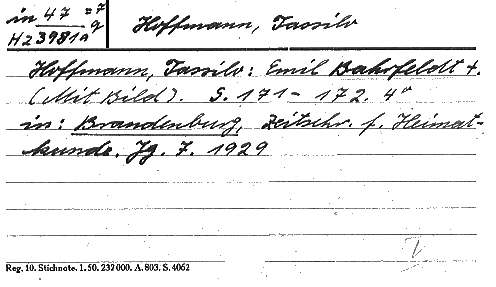 in 47 =7 Hoffmann, Tassilo
H2 3981a q
Hoffmann, Tassilo: Emil Bahrfeldt +.
(Mit Bild). S. 171-172. 4°
in: Brandenburg, Zeitschr. f. Heimat-
kunde. Jg. 7. 1929
V
Reg. 10. Stichnote. 1. 50. 232 000. A. 803. S. 4062